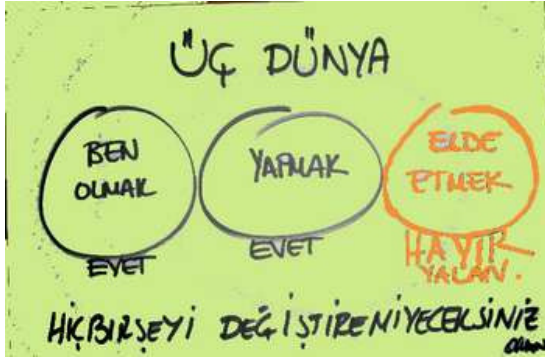 ÜÇ DÜNYA
BEN
OLMAK
EVET
YAPMAK
EVET
ELDE
ETMEK
HAYIR
YALAN.
HİÇBİRŞEYİ DEĞİŞTİREMİYECEKSİNİZ